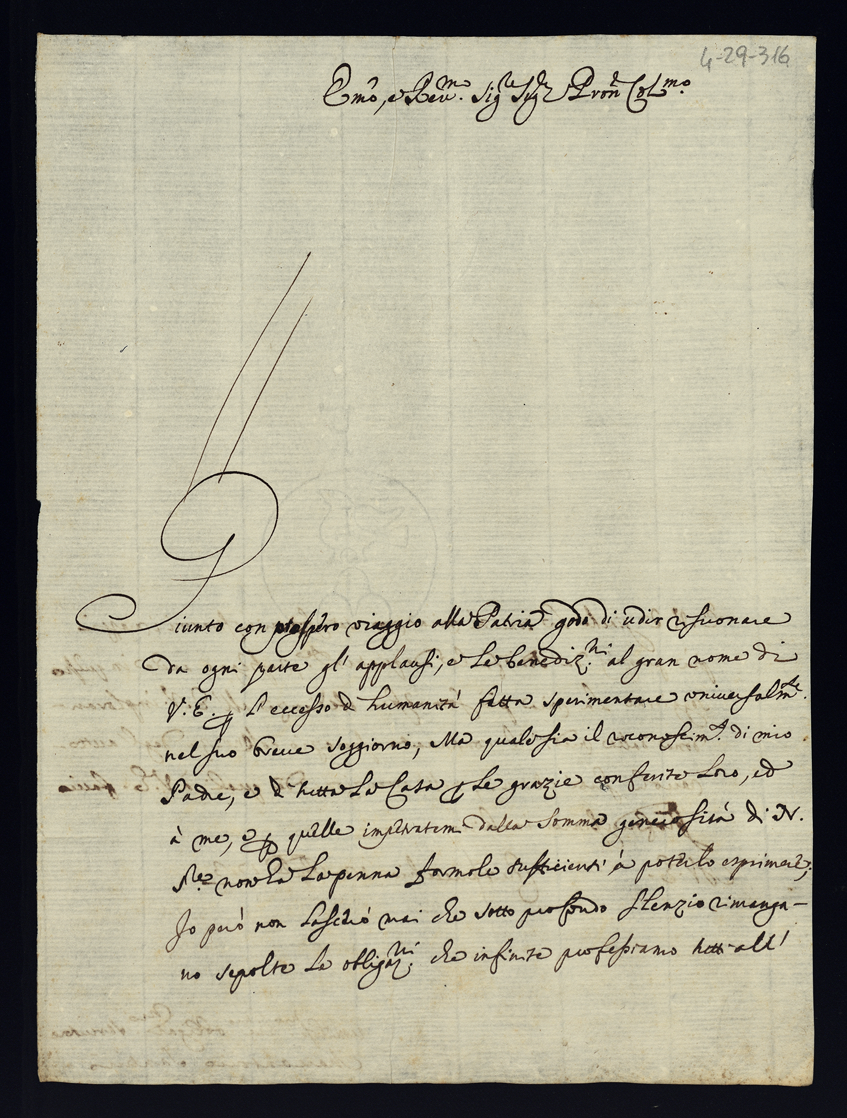 4-29-316
Emo, e Reu.mo Sig.r Sig.r Pron Col.mo
Giunto con prospero viaggio alla Patria godo di udir risuonare
da ogni parte gl' applausi, e le benediz.ni al gran nome di
V. E. p l'eccesso d' humanità fatta sperimentare universalm.te
nel suo breue soggiorno, Ma qual sia il riconoscim.to di mio
Padre, e d' tutta La Casa p Le grazie conferite Loro, ed
à me, e p quelle impetratemi dalla Somma generosità di N.
S.re non hà La penna formole sufficienti à poterlo esprimere;
Io però non Lascierò mai che sotto profondo silenzio rimanga-
no sepolte Le obligaz.ni che infinite professiamo tutti all'